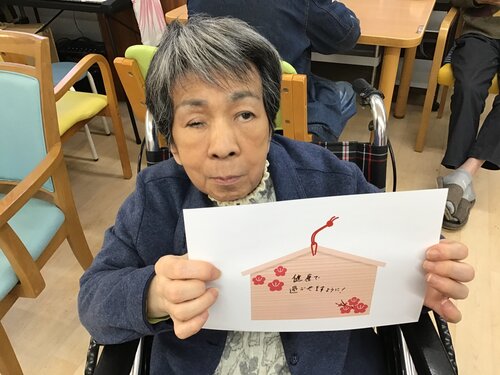 健康で
過ごせますように!